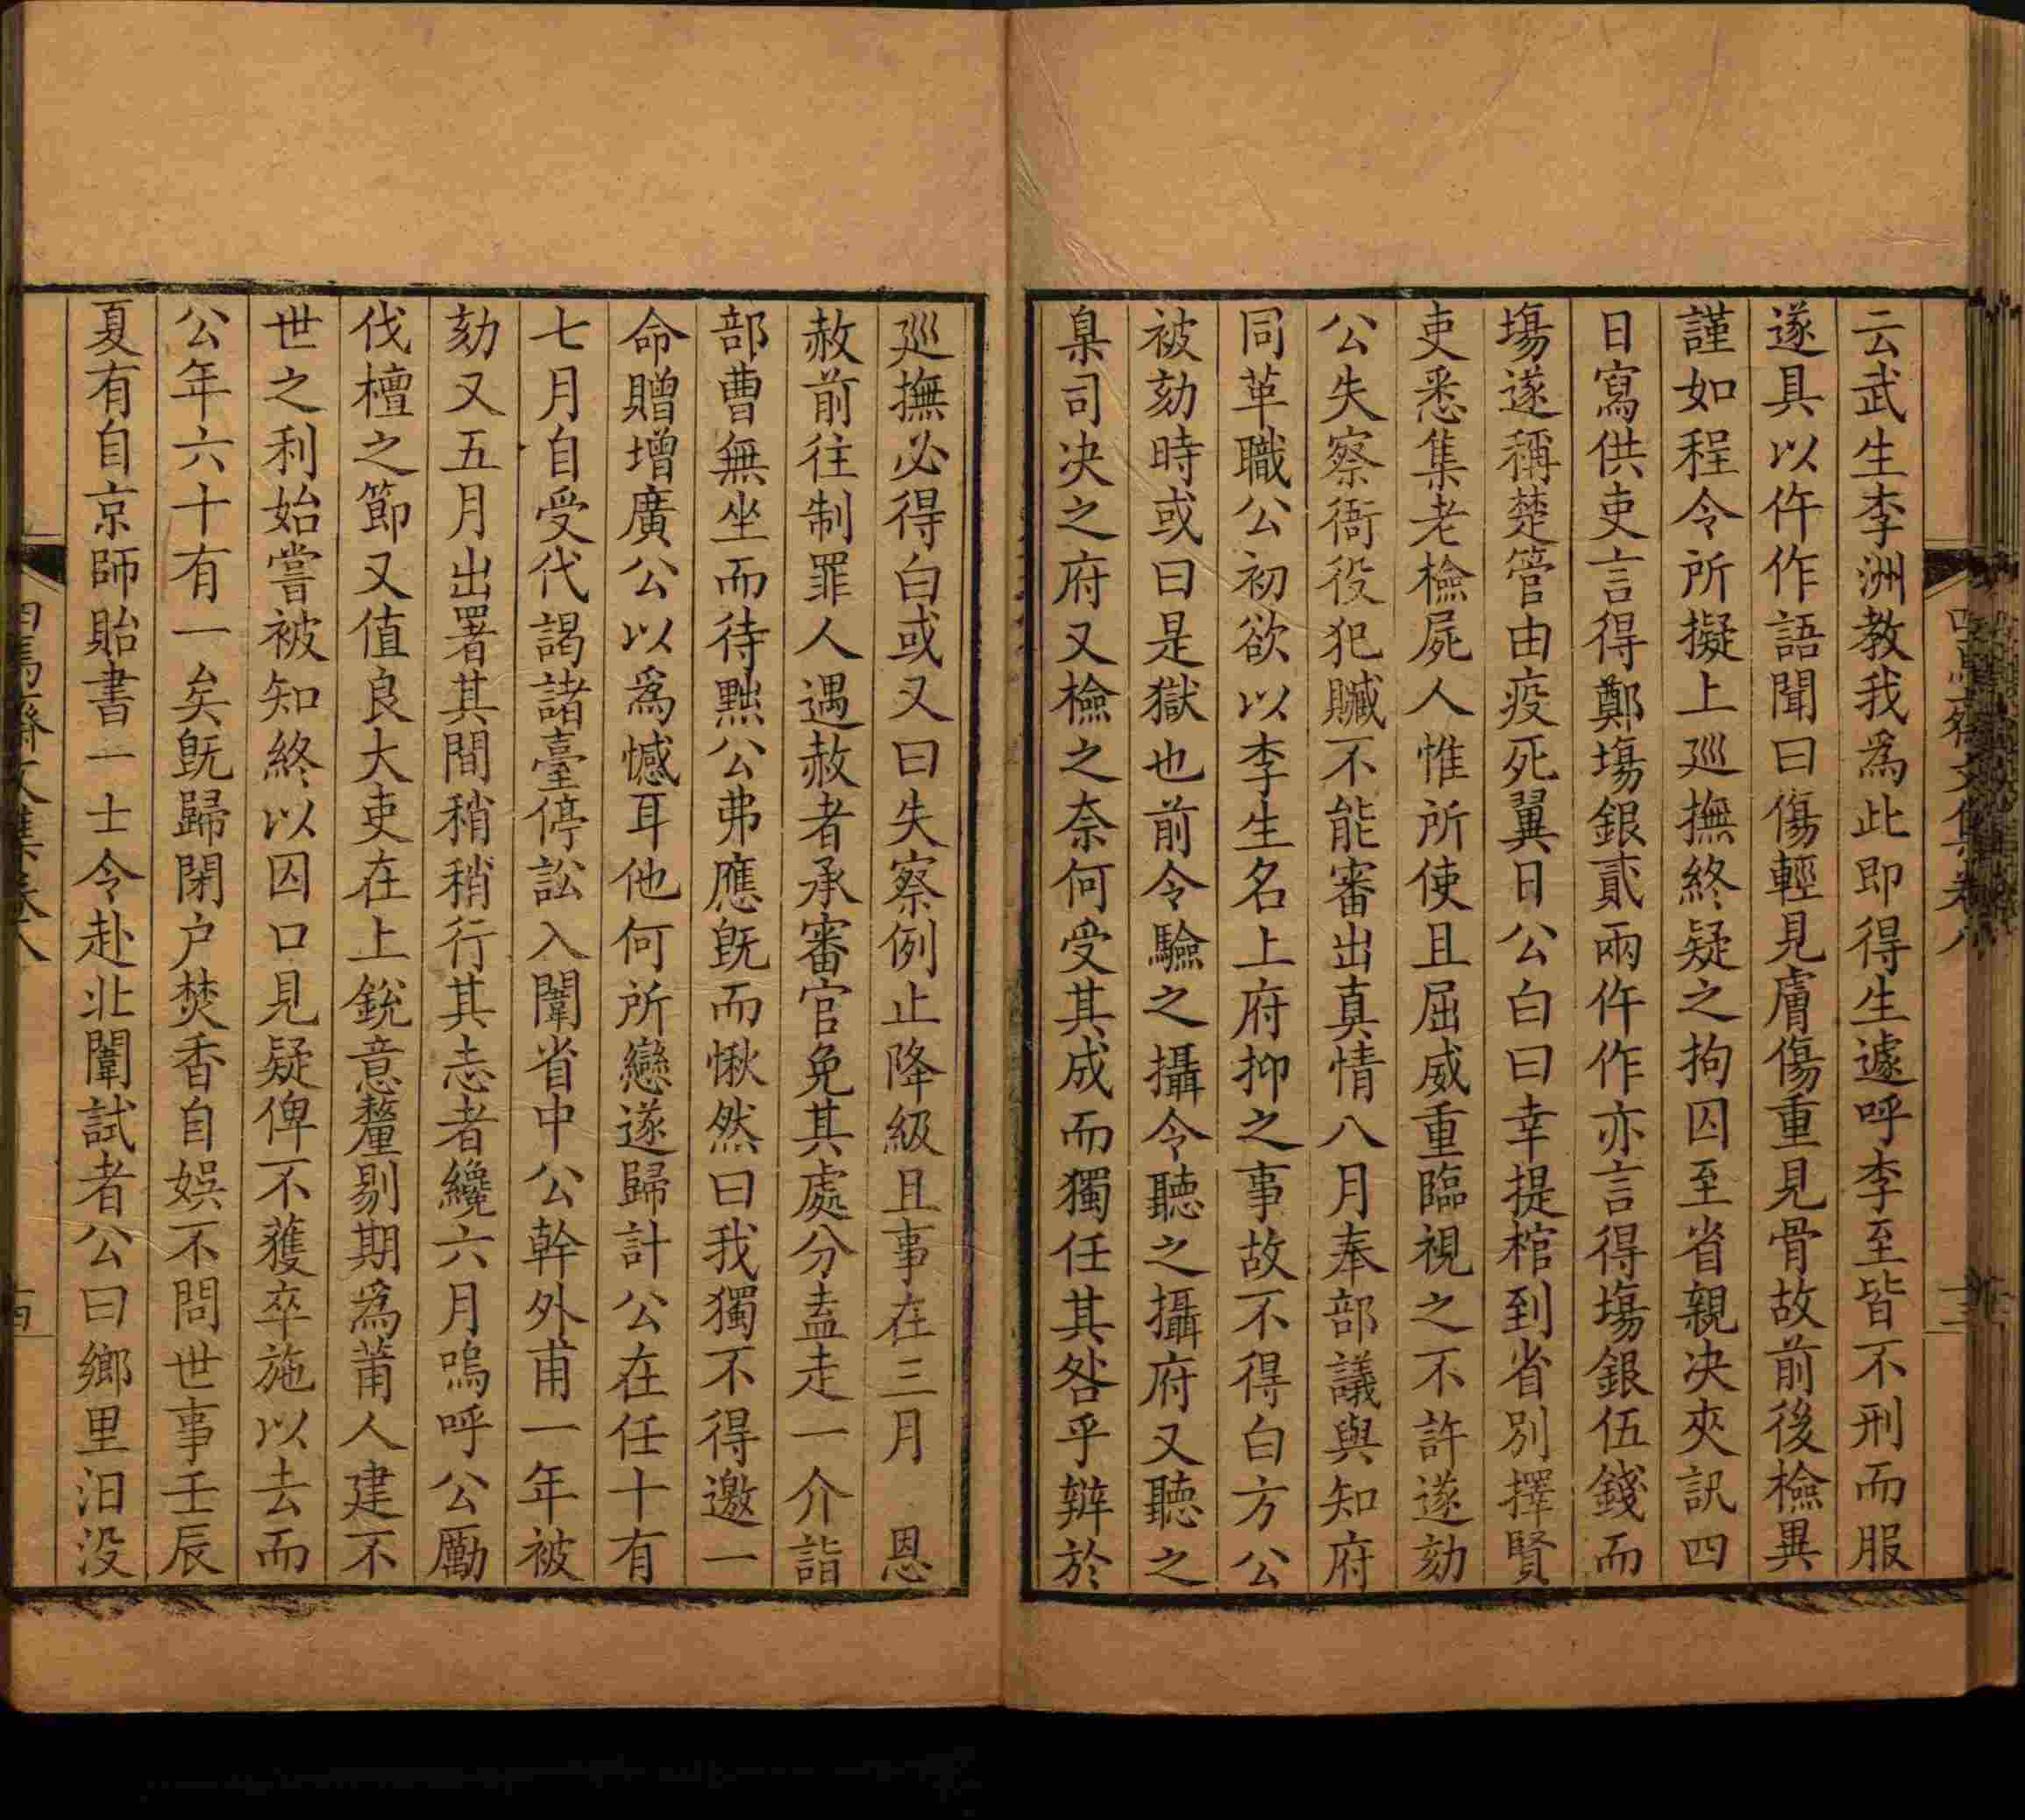 云武生李洲教我為此即得生遽呼李至皆不刑而服
遂具以仵作語聞曰傷輕見膚傷重見骨故前後檢異
謹如程令所擬上巡撫終疑之拘囚至省親决夾訊四
日寫供吏言得鄭塲銀貳兩仵作亦言得塲銀伍錢而
塲遂稱楚管由疫死翼日公白曰幸提棺到省別擇賢
吏悉集老檢屍人惟所使且屈威重臨視之不許遂劾
公失察衙役犯贓不能審出真情八月奉部議與知府
同革職公初欲以李生名上府抑之事故不得白方公
被劾時或曰是獄也前令驗之攝令聽之攝府又聽之
臬司决之府又檢之奈何受其成而獨任其咎乎辩於
巡撫必得白或又曰失察例止降級且事在三月　恩
赦前往制罪人遇赦者承審官免其處分盍走一介詣
部曹無坐而待黜公弗應旣而愀然曰我獨不得邀一
命贈增廣公以為憾耳他何所戀遂歸計公在任十有
七月自受代謁諸臺停訟入闈省中公幹外甫一年被
劾又五月出署其間稍稍行其志者纔六月嗚呼公勵
伐檀之節又值良大吏在上銳意釐剔期為莆人建不
世之利始嘗被知終以囚口見疑俾不獲卒施以去而
公年六十有一矣旣歸閉户焚香自娛不問世事壬辰
夏有自京師貽書一士令赴北闈試者公曰鄉里汨没